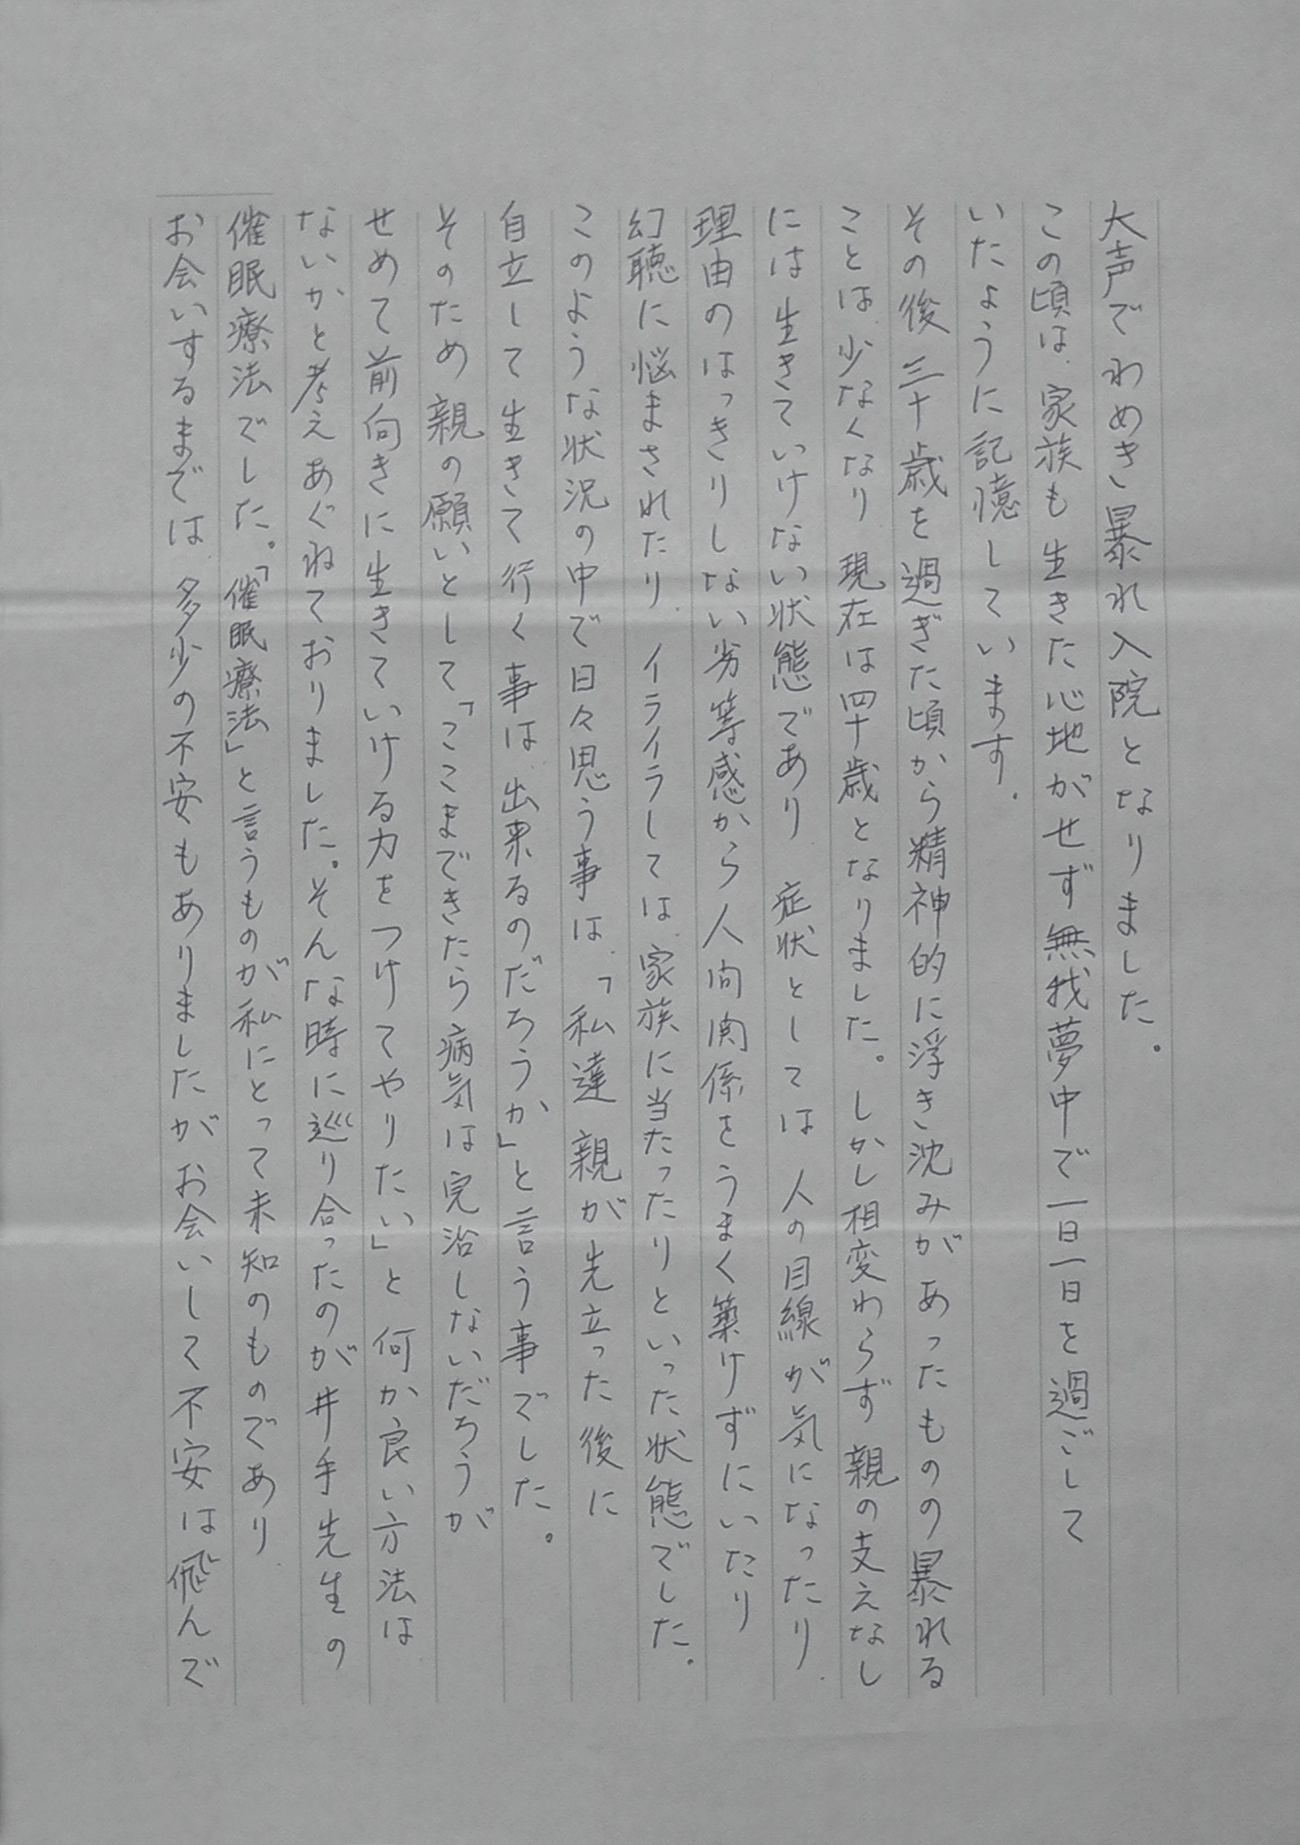 大声でわめき暴れ入院となりました。
この頃は、家族も生きた心地がせず無我夢中で一日一日を過ごして
いたように記憶しています。
その後三十歳を過ぎた頃から精神的に浮き沈みがあったものの暴れる
ことは、少なくなり現在は四十歳となりました。しかし相変わらず親の支えなし
には生きていけない状態であり 症状としては人の目線が気になったり、
理由のはっきりしない劣等感から人間関係をうまく築けずにいたり
幻聴に悩まされたり、イライラしては家族に当たったりといった状態でした。
このような状況の中で日々思う事は、「私達親が先立った後に
自立して生きて行く事は、出来るのだろうか」と言う事でした。
そのため親の願いとして「ここまできたら病気は完治しないだろうが
せめて前向きに生きていける力をつけてやりたい」と何か良い方法は
ないかと考えあぐねておりました。そんな時に巡り合ったのが井手先生の
催眠療法でした。「催眠療法」と言うものが私にとって未知のものであり、
お会いするまでは、多少の不安もありましたがお会いして不安は飛んで